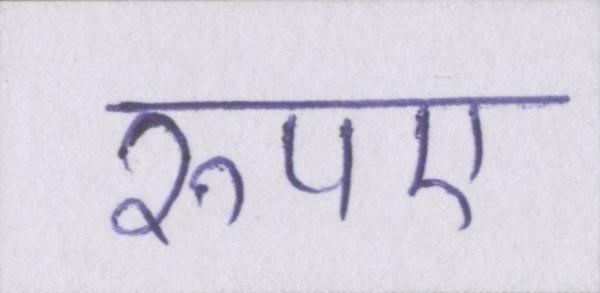 रुपए